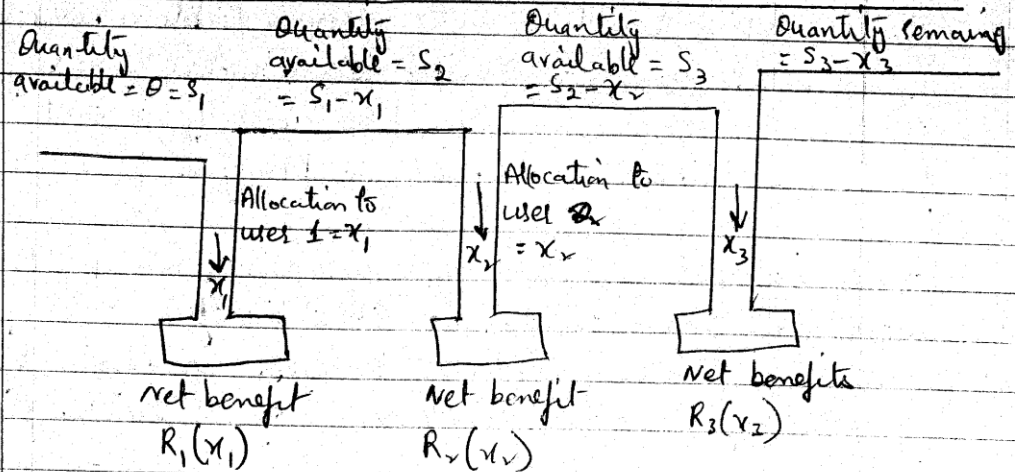 Quantity
available = Q = S₁
Quantity
available = S₂
= S₁-x₁
Quantity
available = S₃
= S₂-x₂
Quantity remaing
= S₃-x₃
Allocation to
user 1 = x₁
x₁
Allocation to
user 2
= x₂
x₂
x₃
Net benefit
R₁(x₁)
Net benefit
R₂(x₂)
Net benefits
R₃(x₃)